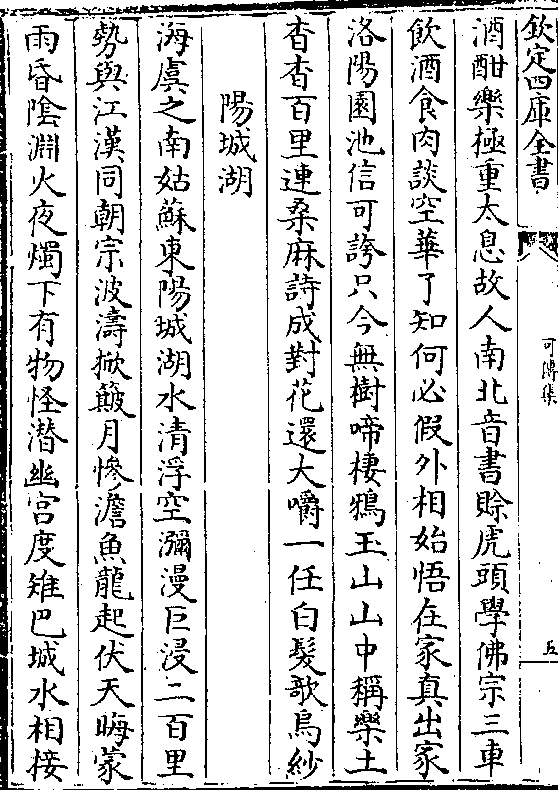 欽定四庫全書
可傳集
五
酒酣樂極重太息故人南北音書賖虎頭學佛宗三車
飲酒食肉談空華了知何必假外相始悟在家真出家
洛陽園池信可誇只今無樹啼棲鴉玉山山中稱樂土
杳杳百里連桑麻詩成對花還大嚼一任白髮歌烏紗
陽城湖
海虞之南姑蘇東陽城湖水清浮空瀰漫巨浸二百里
勢與江漢同朝宗波濤掀簸月慘澹魚龍起伏天晦蒙
雨昏陰淵火夜燭下有物怪潛幽宮度雉巴城水相接